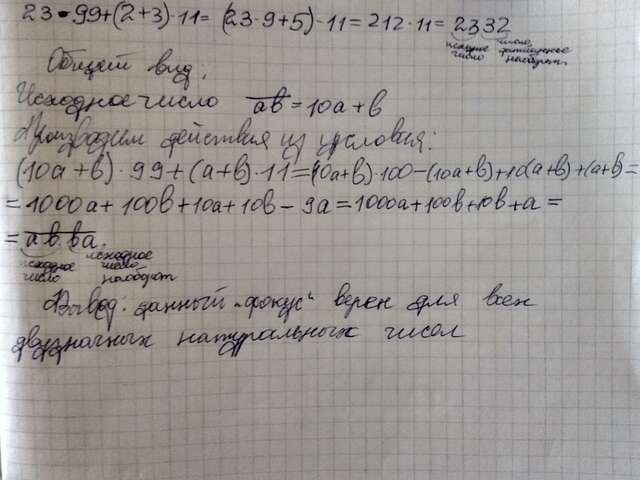 23·99+(2+3)·11= (23·9+5)·11=212·11=2332
исходное число
число, написанное наоборот
Общий вид:
Исходное число ab=10a+b
Производим действия из условия:
(10a+b)·99+(a+b)·11=(10a+b)·100-(10a+b)+10(a+b)+(a+b)=
=1000a+100b+10a+10b-9a=1000a+100b+10b+a=
=abba.
исходное число
исходное число наоборот
Вывод: данный „фокус" верен для всех
двузначных натуральных чисел